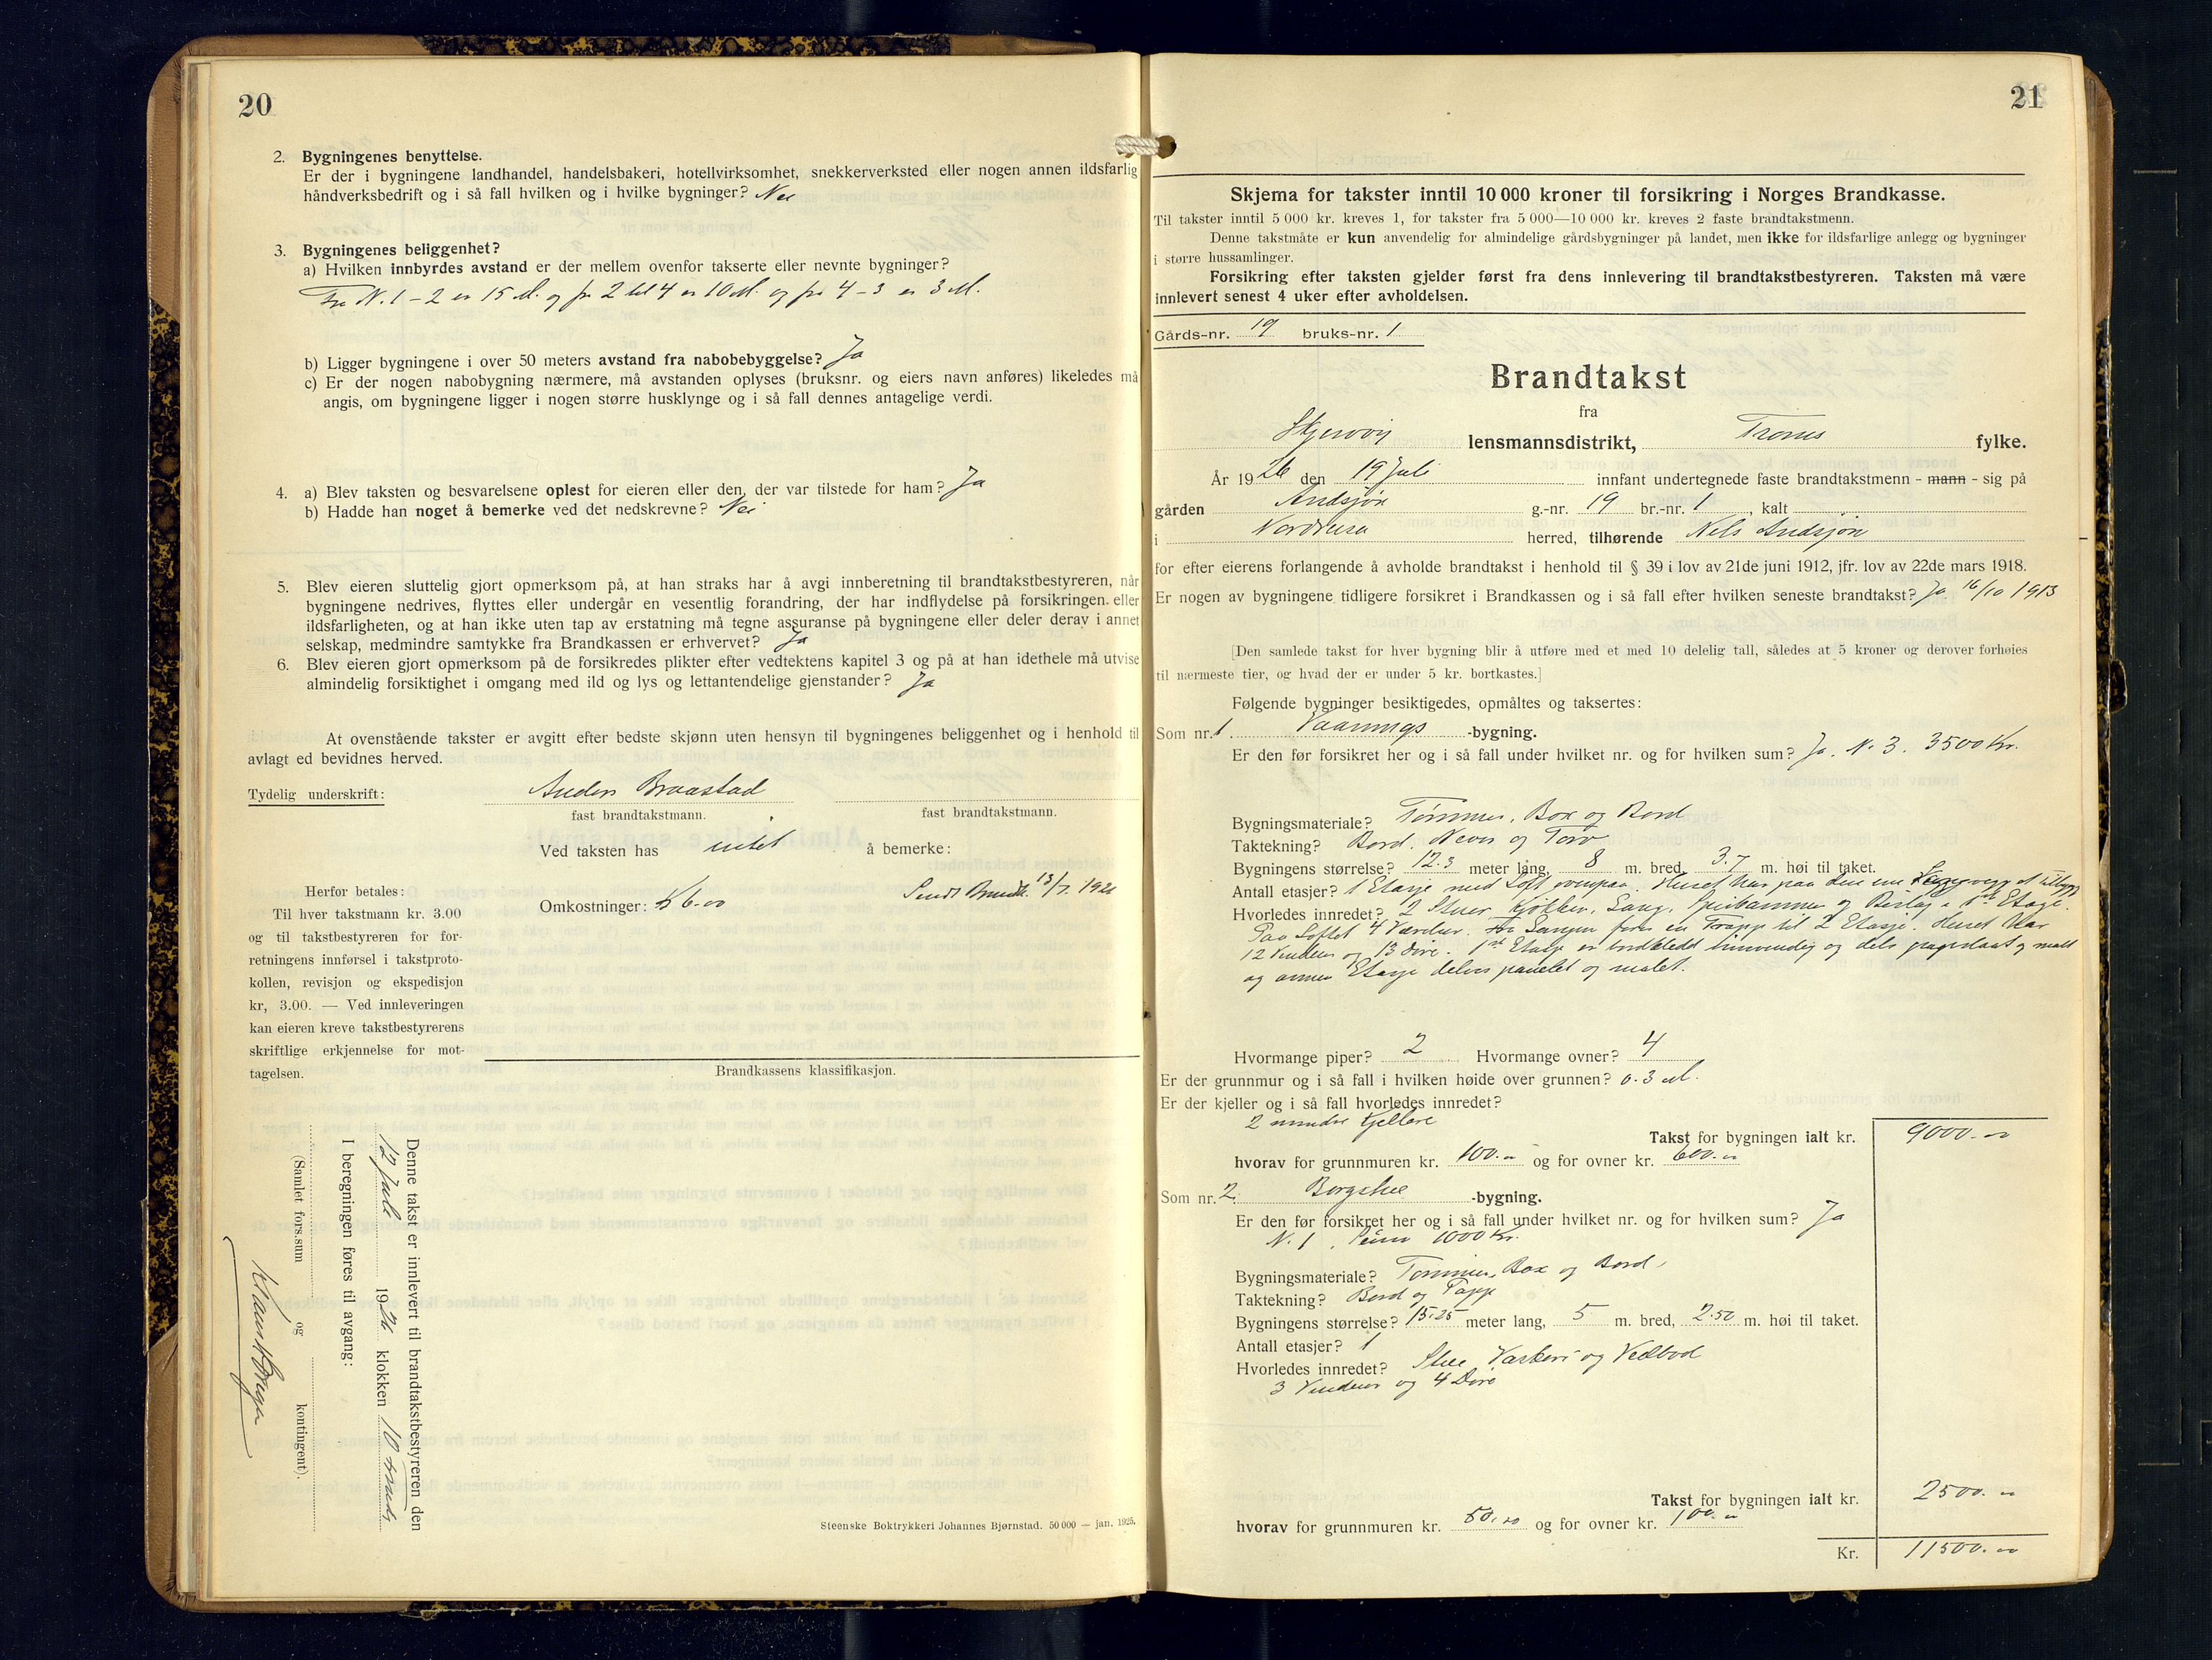 20
2. Bygningenes benyttelse.
Er der i bygningene landhandel, handelsbakeri, hotellvirksomhet, snekkerverksted eller nogen annen ildsfarlig
håndverksbedrift og i så fall hvilken og i hvilke bygninger? Nei
3. Bygningenes beliggenhet?
a) Hvilken innbyrdes avstand er der mellem ovenfor takserte eller nevnte bygninger?
Fra N. 1 – 2 er 15 M. og fra 2 til 4 er 10 M. og fra 4 – 3 er 3 M.
b) Ligger bygningene i over 50 meters avstand fra nabobebyggelse? Ja
c) Er der nogen nabobygning nærmere, må avstanden oplyses (bruksnr. og eiers navn anføres) likeledes må
angis, om bygningene ligger i nogen større husklynge og i så fall dennes antagelige verdi.
4. a) Blev taksten og besvarelsene oplest for eieren eller den, der var tilstede for ham? Ja
b) Hadde han noget å bemerke ved det nedskrevne? Nei
5. Blev eieren sluttelig gjort opmerksom på, at han straks har å avgi innberetning til brandtakstbestyreren, når
bygningene nedrives, flyttes eller undergår en vesentlig forandring, der har indflydelse på forsikringen eller
ildsfarligheten, og at han ikke uten tap av erstatning må tegne assuranse på bygningene eller deler derav i annet
selskap, medmindre samtykke fra Brandkassen er erhvervet? Ja
6. Blev eieren gjort opmerksom på de forsikredes plikter efter vedtektens kapitel 3 og på at han idethele må utvise
almindelig forsiktighet i omgang med ild og lys og lettantendelige gjenstander? Ja
At ovenstående takster er avgitt efter bedste skjønn uten hensyn til bygningenes beliggenhet og i henhold til
avlagt ed bevidnes herved.
Tydelig underskrift: Anders Braastad
fast brandtakstmann. fast brandtakstmann.
Ved taksten has intet å bemerke:
Herfor betales:
Til hver takstmann kr. 3.00
og til takstbestyreren for for-
retningens innførsel i takstproto-
kollen, revisjon og ekspedisjon
kr, 3.00. — Ved innleveringen
kan eieren kreve takstbestyrerens
skriftlige erkjennelse for mot-
tagelsen.
Omkostninger: kr 6.00
Sendt Brandk. 13/7. 1926
Brandkassens klassifikasjon.
Denne takst er innlevert til brandtakstbestyreren den
12 juli 1926 klokken 10
I beregningen føres til avgang:
(Samlet fors.sum og kontingent).
Steenske Boktrykkeri Johannes Bjørnstad. 50 000 — jan. 1925.
21
Skjema for takster inntil 10 000 kroner til forsikring i Norges Brandkasse.
Til takster inntil 5 000 kr. kreves 1, for takster fra 5 000—10 000 kr. kreves 2 faste brandtakstmenn.
Denne takstmåte er kun anvendelig for almindelige gårdsbygninger på landet, men ikke for ildsfarlige anlegg og bygninger
i større hussamlinger.
Forsikring efter taksten gjelder først fra dens innlevering til brandtakstbestyreren. Taksten må være
innlevert senest 4 uker efter avholdelsen.
Gårds-nr. 19 bruks-nr. 1
Brandtakst
fra
Skjervøy lensmannsdistrikt, Troms fylke.
År 1926 den 19 Juli innfant undertegnede faste brandtakstmenn - mann - sig på
gården Andsjøn g.-nr. 19 br.-nr. 1, kalt
i Nordreisa herred, tilhørende Nils Andsjøn
for efter eierens forlangende å avholde brandtakst i henhold til § 39 i lov av 21de juni 1912, jfr. lov av 22de mars 1918.
Er nogen av bygningene tidligere forsikret i Brandkassen og i så fall efter hvilken seneste brandtakst? Ja 16/10 1913
[Den samlede takst for hver bygning blir å utføre med et med 10 delelig tall, således at 5 kroner og derover forhøies
til nærmeste tier, og hvad der er under 5 kr. bortkastes.]
Følgende bygninger besiktigedes, opmåltes og taksertes:
Som nr. 1. Vaanings -bygning.
Er den før forsikret her og i så fall under hvilket nr. og for hvilken sum? Ja. N. 3. 3500 Kr.
Bygningsmateriale? Tømmer, Box og Bord
Taktekning? Bord. Never og Torv
Bygningens størrelse? 12.3 meter lang, 8 m. bred, 3.7 m. høi til taket.
Antall etasjer? 1 Etasje med Loft ovenpaa. Huset har paa den ene Langvegg et tilbygg
Hvorledes innredet? 2 Stuer, Kjøkken, Gang, Spiskammer og Bislag i 1ste Etage.
Paa Loftet 4 Værelser. Fra Gangen fører en Trapp til 2 Etasje. Huset har
12 Vinduer og 13 Døre. 1ste Etasje er bordkledd innvendig og dels papirslaat og malt
og annen Etasje delvis panelet og malet.
Hvormange piper? 2 Hvormange ovner? 4
Er der grunnmur og i så fall i hvilken høide over grunnen? 0.3 M.
Er der kjeller og i så fall hvorledes innredet?
2 mindre Kjellere
Takst for bygningen ialt kr. 9000.00
hvorav for grunnmuren kr. 100.00 og for ovner kr. 600.00
Som nr. 2. Borgstue -bygning.
Er den før forsikret her og i så fall under hvilket nr. og for hvilken sum? Ja
N. 1, 1000 Kr.
Bygningsmateriale? Tømmer, Box og Bord,
Taktekning? Bord og Papp
Bygningens størrelse? 15.25 meter lang, 5 m. bred, 2.50 m. høi til taket.
Antall etasjer? 1
Hvorledes innredet? Stue, Vaskeri og Vedbod
3 Vinduer og 4 Døre
Takst for bygningen ialt kr. 2500.00
hvorav for grunnmuren kr. 50.00 og for ovner kr. 100.00
Kr. 11500.00